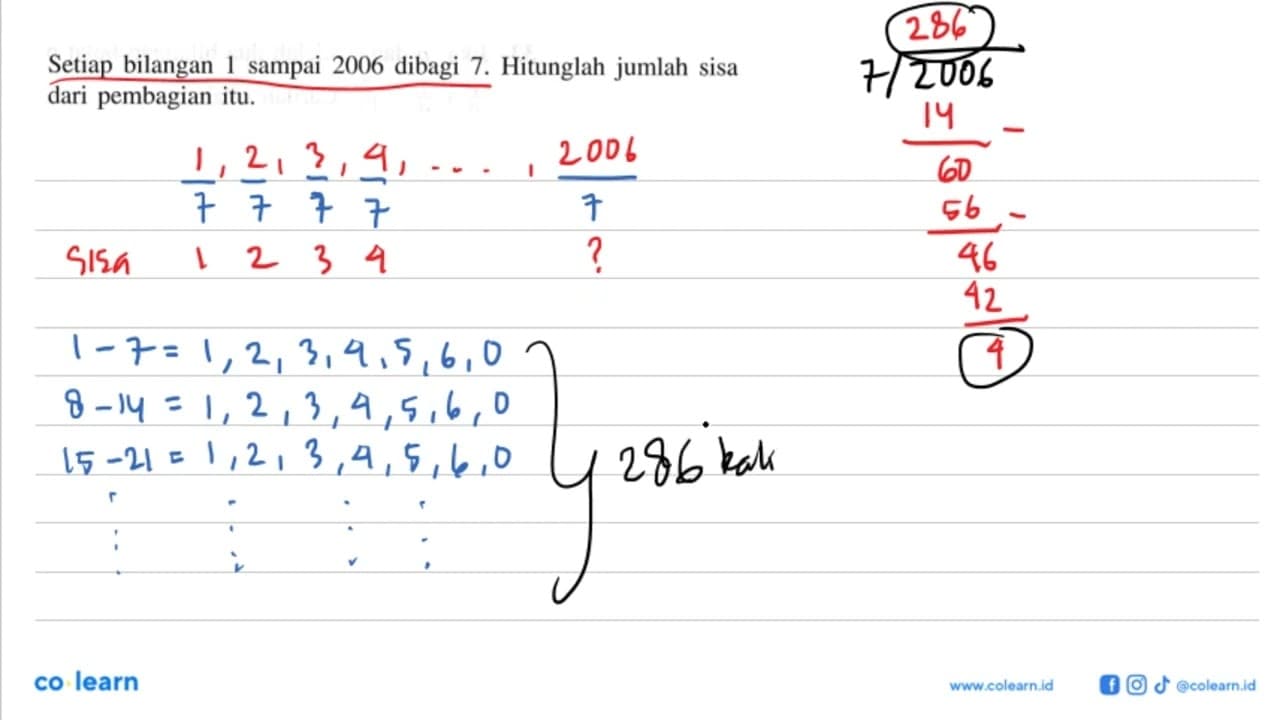 Setiap bilangan 1 sampai 2006 dibagi 7. Hitunglah jumlah sisa
dari pembagian itu.
1/7, 2/7, 3/7, 4/7, ...., 2006/7
sisa 1 2 3 4 ?
1 - 7 = 1, 2, 3, 4, 5, 6, 0
8 - 14 = 1, 2, 3, 4, 5, 6, 0
15 - 21 = 1, 2, 3, 4, 5, 6, 0
286 kali
286
7/2006
14 -
60
56 -
46
42
4
co learn
www.colearn.id
@colearn.id